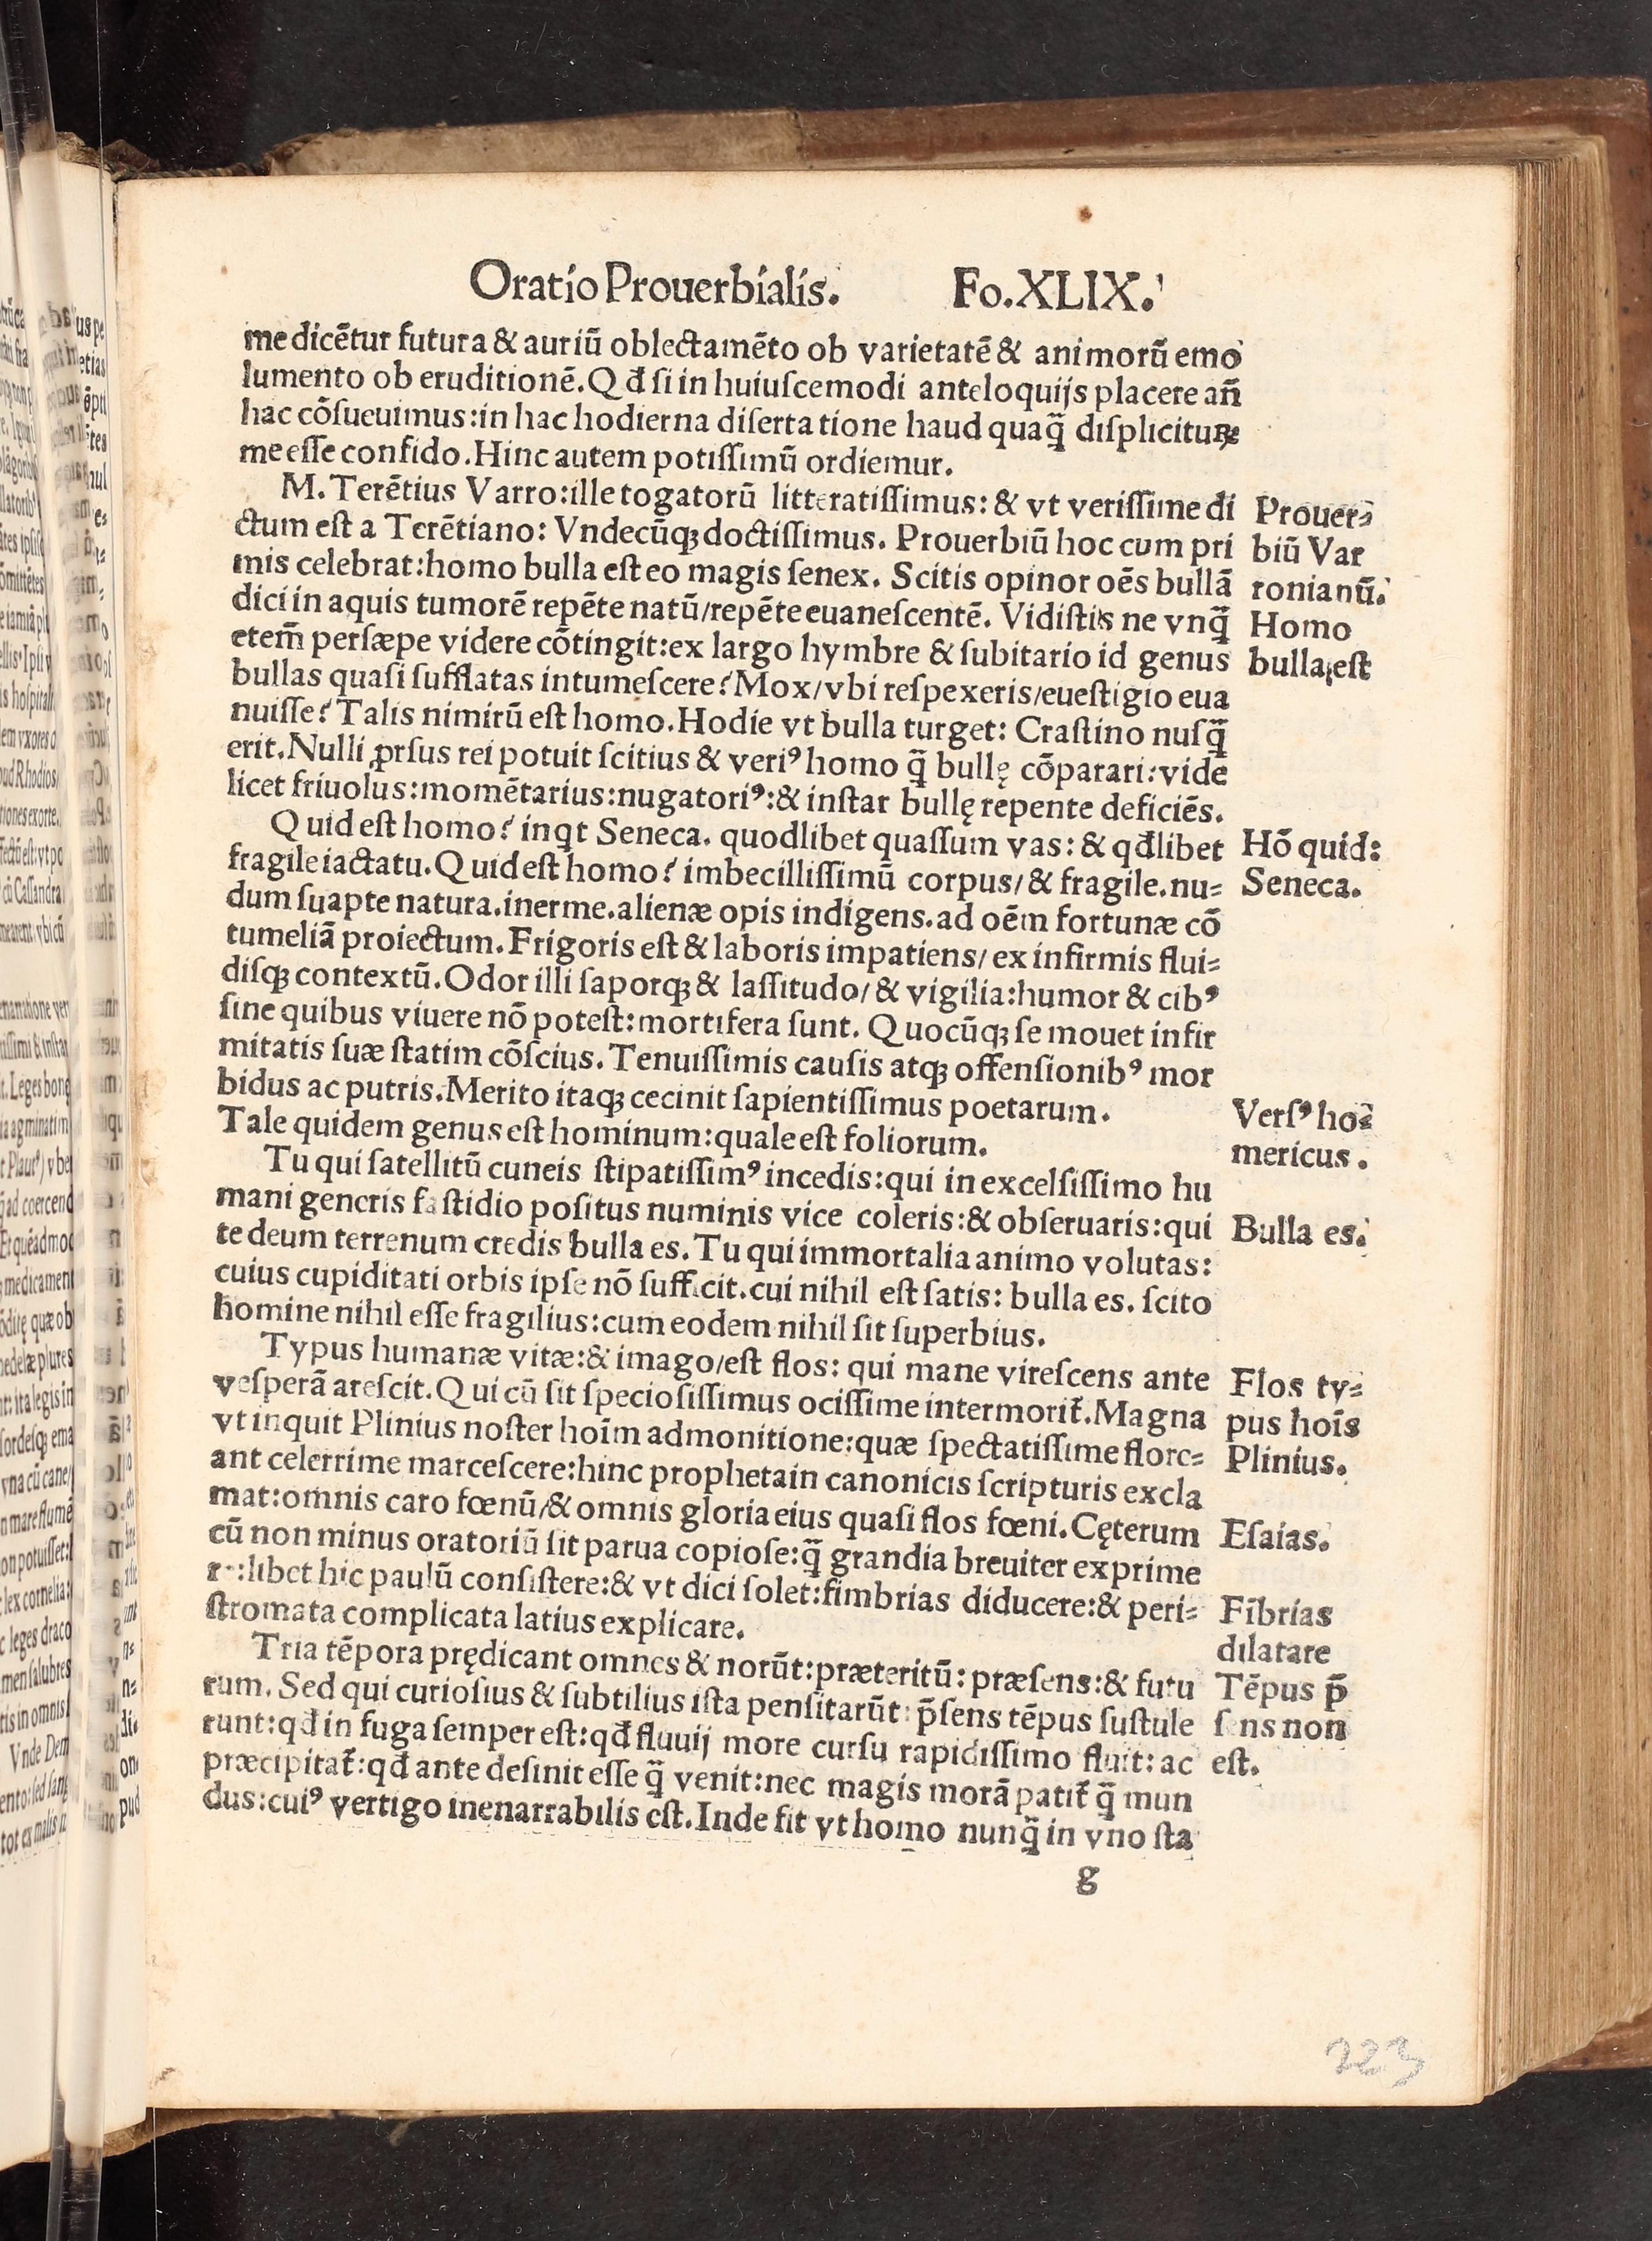 Oratio Prouerbialis. Fo.XLIX.
me dicētur futura & auriū oblectamēto ob varietatē & animorū emo
lumento ob eruditionē. Qđ ſi in huiuſcemodi anteloquijs placere añ
hac cōſueuimus: in hac hodierna diſertatione haud quaq̃ diſplicituꝝ
me eſſe confido. Hinc autem potiſſimū ordiemur.
M. Terētius Varro: ille togatorū litteratiſſimus: & vt veriſſime di
ctum eſt a Terētiano: Vndecūqꝫ doctiſſimus. Prouerbiū hoc cum pri
mis celebrat: homo bulla eſt eo magis ſenex. Scitis opinor oēs bullā
dici in aquis tumorē repēte natū/repēte euaneſcentē. Vidiſtis ne vnq̃
etem̃ perſæpe videre cōtingit: ex largo hymbre & ſubitario id genus
bullas quaſi ſufflatas intumeſcere? Mox/vbi reſpexeris/eueſtigio eua
nuiſſe? Talis nimirū eſt homo. Hodie vt bulla turget: Craſtino nuſq̃
erit. Nulli ꝓrſus rei potuit ſcitius & veriꝰ homo q̃ bullę cōparari: vide
licet friuolus: momētarius: nugatoriꝰ: & inſtar bullę repente deficiēs.
Quid eſt homo? inqt Seneca. quodlibet quaſſum vas: & qđlibet
fragile iactatu. Quid eſt homo? imbecilliſſimū corpus/& fragile. nu⸗
dum ſuapte natura. inerme. alienæ opis indigens. ad oēm fortunæ cō
tumeliā proiectum. Frigoris eſt & laboris impatiens/ex infirmis flui⸗
diſqꝫ contextū. Odor illi ſaporqꝫ & laſſitudo/& vigilia: humor & cibꝰ
ſine quibus viuere nō poteſt: mortifera ſunt. Quocūqꝫ ſe mouet infir
mitatis ſuæ ſtatim cōſcius. Tenuiſſimis cauſis atqꝫ offenſionibꝰ mor
bidus ac putris. Merito itaqꝫ cecinit ſapientiſſimus poetarum.
Tale quidem genus eſt hominum: quale eſt foliorum.
Tu qui ſatellitū cuneis ſtipatiſſimꝰ incedis: qui in excelſiſſimo hu
mani generis faſtidio poſitus numinis vice coleris: & obſeruaris: qui
te deum terrenum credis bulla es. Tu qui immortalia animo volutas:
cuius cupiditati orbis ipſe nō ſufficit. cui nihil eſt ſatis: bulla es. ſcito
homine nihil eſſe fragilius: cum eodem nihil ſit ſuperbius.
Typus humanæ vitæ: & imago/eſt flos: qui mane vireſcens ante
veſperā areſcit. Qui cū ſit ſpecioſiſſimus ociſſime intermorit̃. Magna
vt inquit Plinius noſter hoīm admonitione: quæ ſpectatiſſime flore⸗
ant celerrime marceſcere: hinc propheta in canonicis ſcripturis excla
mat: omnis caro fœnū/& omnis gloria eius quaſi flos fœni. Cęterum
cū non minus oratoriū ſit parua copioſe: q̃ grandia breuiter exprime
re: libet hic paulū conſiſtere: & vt dici ſolet: fimbrias diducere: & peri⸗
ſtromata complicata latius explicare.
Tria tēpora prędicant omnes & norūt: præteritū: præſens: & futu
rum. Sed qui curioſius & ſubtilius iſta penſitarūt: p̄ſens tēpus ſuſtule
runt: qđ in fuga ſemper eſt: qđ fluuij more curſu rapidiſſimo fluit: ac
præcipitat̃: qđ ante deſinit eſſe q̃ venit: nec magis morā patit̃ q̃ mun
dus: cuiꝰ vertigo inenarrabilis eſt. Inde fit vt homo nunq̃ in vno ſta
g
Prouer⸗
biū Var
ronianū.
Homo
bulla eſt
Hō quid:
Seneca.
Verſꝰ ho⸗
mericus.
Bulla es.
Flos ty⸗
pus hoīs
Plinius.
Eſaias.
Fībrias
dilatare
Tēpus p̄
ſens non
eſt.
223